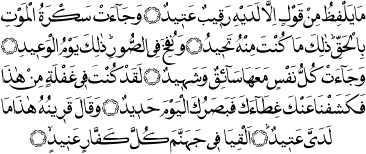 مَا يَلْفِظُ مِنْ قَوْلٍ اِلَّا لَدَيْهِ رَقِيبٌ عَتِيدٌ ۝ وَجَآءَتْ سَكْرَةُ الْمَوْتِ
بِالْحَقِّ ذٰلِكَ مَا كُنْتَ مِنْهُ تَحِيدُ ۝ وَنُفِخَ فِي الصُّورِ ذٰلِكَ يَوْمُ الْوَعِيدِ ۝
وَجَآءَتْ كُلُّ نَفْسٍ مَعَهَا سَآئِقٌ وَشَهِيدٌ ۝ لَقَدْ كُنْتَ فِي غَفْلَةٍ مِنْ هٰذَا
فَكَشَفْنَا عَنْكَ غِطَآءَكَ فَبَصَرُكَ الْيَوْمَ حَدِيدٌ ۝ وَقَالَ قَرِينُهُ هٰذَا مَا
لَدَيَّ عَتِيدٌ ۝ اَلْقِيَا فِي جَهَنَّمَ كُلَّ كَفَّارٍ عَنِيدٍ ۝